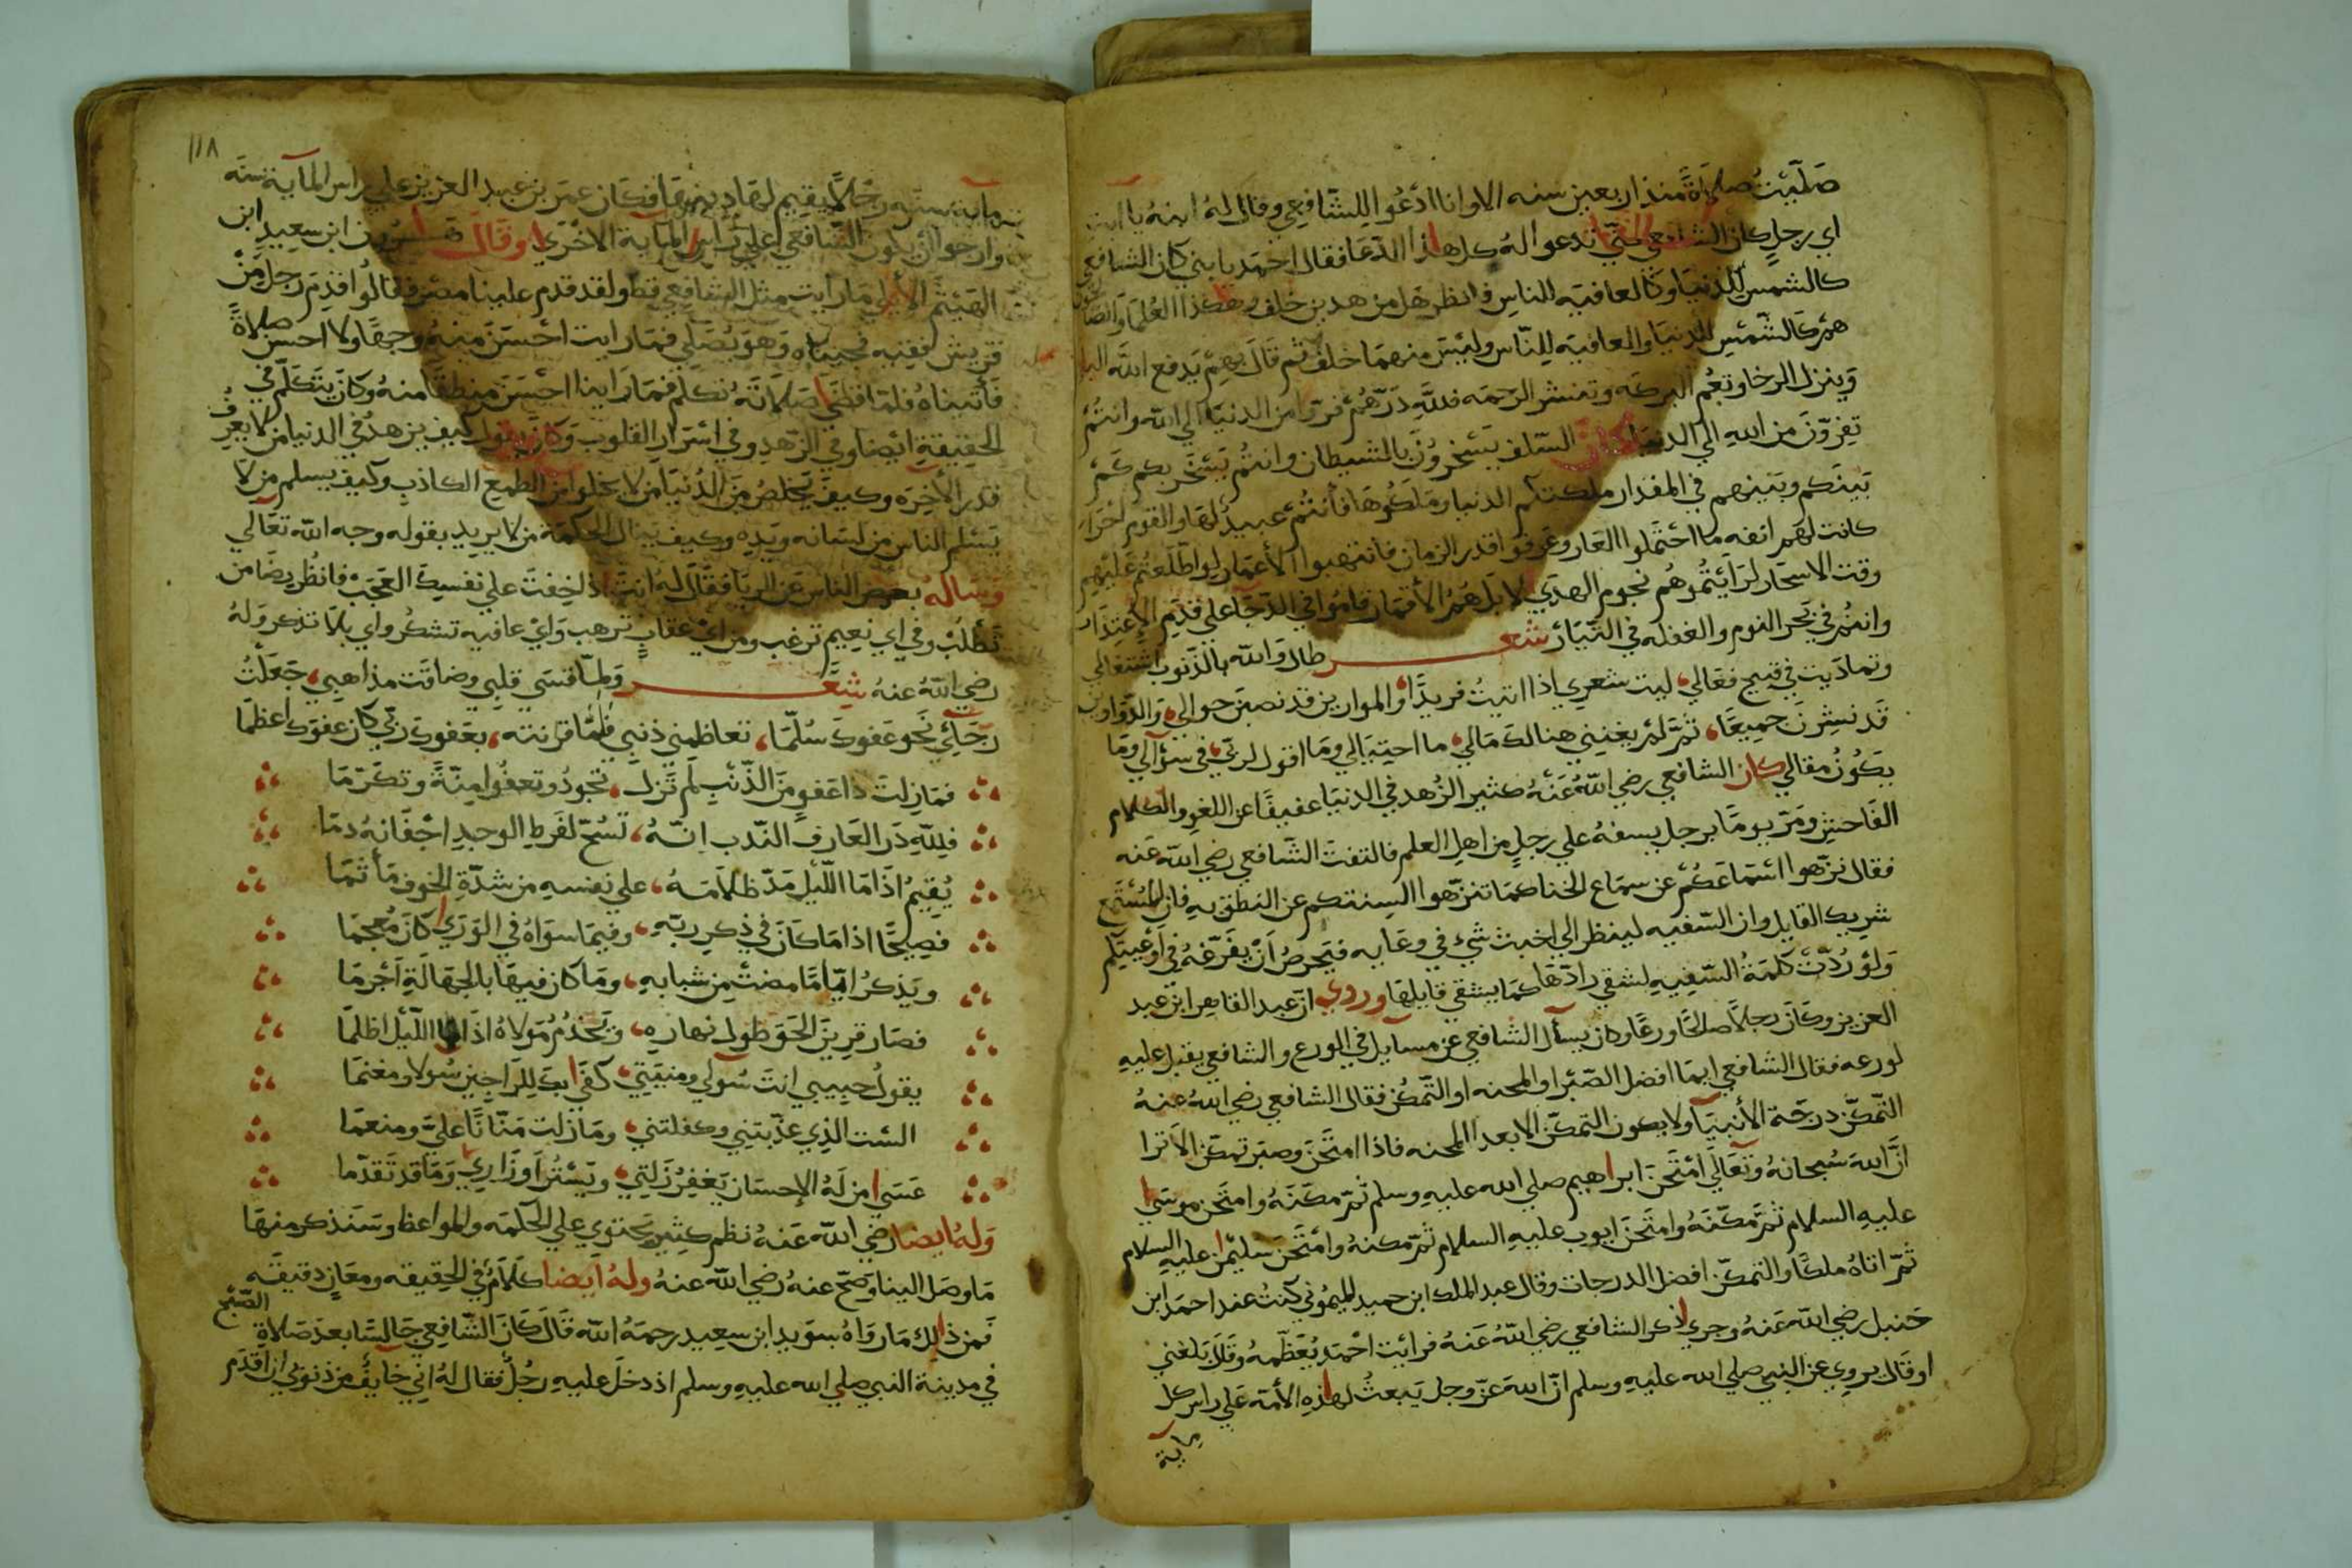 صَلّيْتُ صلاةً منذ اربعين سنه الا وانا ادْعُوا للِشّافعِي وقال لهُ ابنهُ يا ابت
اي رجلٍ كان الشافعي حتّي تدعوا لهُ كل هذا الدّعا فقال احْمَد يا بني كان الشافعي
كالشمس للدّنيَا وكالعافيَه للناس فانظر هل من هدين خلف وهكذا العُلمَا
همر كالشّمْسِ للدنيَا والعافيَه لِلنّاس وليْسَ منهمَا خلفْ ثم قَالَ بهِمْ يَدفع الله البلا
وَينزل الرخا وتعُم البركه وتنشر الرحمَه فللّهِ دَرّهُمْ فرّوا من الدنيَا الي الله وانتُمْ
تفِرّونَ من اللهِ الي الدنيَا كان السّلف يَسْخرُونَ بالشيطان وانتُم يَسْخَر بكم كَمْ
بَينَكم وبَينهم في المقدار ملكتكم الدنيا ومَلَكُوهَا فأنتُمْ عبيدٌ لهَا والقوم احْرَار
كانت لهَم انفه ما احْتَملوا العَار وعَرفوا قدر الزمان فانتهبوا الأعمَار لو اطّلَعتُم عَلَيْهِم
وقت الاسحَار لرَايْتُموهُم نجوم الهدَي لا بَل هُمُ الأقمَار قامُوا في الدّجَا علي قدَمِ الإعتذَار
وانتُمْ في بَحر النوم والغفله في التّيَار شعر طال وَالله بالذَنوب اشتغَالي
وتمادَيت في قبيح فعَالي، ليت شعري اذا اتيتُ فريدًا، والموازين قد نصبَن حوالي، وَالدّواوين
قَد نشِرنَ جميعًا، ثمّ لمْ يغنِني هنالكَ مَالي، ما احتيَالي ومَا اقول لربّي، في سؤالي ومَا
يَكُونُ مقالي كان الشافعي رضي اللهُ عَنْهُ كثير الزُهد في الدنيَا عفيفًا عن اللغوِ والكلام
الفَاحِشِ ومَرّ يومًا برجل يسفهُ علي رجلٍ من اهلِ العلم فالتفتَ الشّافعي رضي الله عَنه
فقال نزّهوا اسْمَاعَكُمْ عن سمَاع الخنا كمَا تنزّهوا السِنتكم عن النطقِ بهِ فانّ المُسْتمِع
شريك القايل وان السّفيه لينظر الي اخبث شيْ في وعَايه فيَحرصُ اَنْ يفرّغهُ في اَوْعيَتِكم
وَلوْ رُدّتْ كلمَةُ السّفِيهِ لشقي رادّهَا كمَا يشقي قايلهَا وروي انّ عبد القاهر ابن عبد
العزيز وكَانَ رجلاً صالحًا ورعًا وكان يسأل الشافعي عن مسايل في الورع والشافعي يقبل عليهِ
لورعه فقال الشافعي ايمَا افضل الصّبْر او المحنه او التّمكُن فقال الشافعي رضي اللهُ عنهُ
التّمكّن درجَة الأنبيَا ولا يكون التمكّن الا بعد المحنه فاذا امتَحَن وصبَر تمكّن الا ترا
انَّ اللهَ سُبحانهُ وتَعَالَي امْتَحَنَ ابراهيم صلي الله عليهِ وسلم ثمّ مكّنَهُ وامتَحَن موسَي
عليهِ السلام ثمَّ مكّنَهُ وامتَحَنَ ايوب عليهِ السلام ثمّ مكنهُ وامْتَحَنَ سليْمن عليهِ السلام
ثمّ اتاهُ ملكًا والتمكّن افضل الدرجات وقال عبد الملك ابن حميد الميمُوني كنتُ عند احمَد ابن
حَنبل رضي الله عَنهُ وجري ذكر الشافعي رضي اللهُ عَنهُ فرايْت احْمَد يُعَظّمهُ وقَالَ بَلغني
او قَالَ يروي عن النبي صلي الله عليهِ وسلم انّ اللهَ عزّ وجل يَبعثُ لهذه الأمّه عَلي راس كل
ماية
١١٨
ماية سنه رجُلاً يقيم لهَا دينهَا فكَان عمَر بن عبد العزيز علي راس الماية سنَه
وارجوا أن يكون الشّافعي علي رأس الماية الاخرَي وقَالَ هرون ابن سعِيد ابن
الهَيْثَم الأيلي مَا رأيت مثل الشافعِي قط ولقد قدم علينا مصر فقالوا قدِمَ رجل مِنْ
قريش فقيه فجيناه وَهوَ يُصَلّي فمَا رايت احْسَنَ منهُ وجهًا ولا احسن صلاةً
فَأتيناهُ فلمّا قضَي صَلاتَهُ تكلم فمَا رَاينا احْسَنَ منطقًا منهُ وكانَ يتَكلّم في
الحقيقةِ ايْضا وفي الزّهدِ وفي اسْرَارِ القلوبِ وَكَانَ يقول كيف يزهدُ في الدنيا من لا يعْرِفُ
قَدر الأخِرَه وكيفَ يَخلصُ مِنَ الدُنيَا مَن لا يَخلوا من الطمعِ الكاذبِ وكيف يسلم من لا
يَسْلم الناس من لسَانه ويَدِه وكيف يَنال الحكمَة من لا يريد بقوله وجه الله تعَالي
وسَالهُ بعض الناس عن الريَا فقَال لهُ انتَ اذ لخِفتَ علي نفسِكَ العجَبْ فانظُر رِضَا من
تَطْلُبُ وفي اي نعِيم ترغب ومن ايْ عقابٍ ترهب وَايْ عافيه تشكر واي بلا تذكر وَلهُ
رضي اللهُ عنهُ شعر وَلمّا قسَي قلبي وضاقَت مذاهبِي، جَعَلْتُ
رَجَائِي نَحو عَفوكَ سُلّمًا، تعاظمني ذنبي فَلمّا قرَنته، بعَفوكَ رَبّي كان عفوك أعظمَا
فمَا زِلتَ ذا عَفوٍ مِنَ الذّنْبِ لَم تزَل، تجودُ وتعفُوا مِنّةً وتكرّمَا
فلِلّهِ دَر العَارف النّدب انّهُ، تَسُحّ لفَرطِ الوجدِ اجْفَانهُ دمَا
يُقيْمُ اذَا مَا اللّيْل مَدّ ظلاَمَهُ، علي نفسهِ من شدّةِ الخوف مَأْتمَا
فصِيحًا اذا مَا كَانَ في ذكرِ ربّهِ، وفيمَا سوَاهُ في الوَرَي كانَ مُعجمَا
ويَذكرُ ايّامًا مضتْ مِن شبابهِ، ومَا كان فيهَا بالجهَالَةِ اَجْرمَا
فصَار قرينَ الحَق طول نهارهِ، ويَخدُمُ مَولاهُ اذَا ما اللّيْل اظلمَا
يقولُ حبِيبي انتَ سُولي ومنيَتِي، كفَي بكَ للِرّاجِين سُولا ومغنمَا
السْت الذِي عذّبتنِي وكفلتني، ومَا زلت مَنّانًا عليّ ومنعمَا
عَسَي من لَهُ الإحسَان يَغفِرُ زَلتِي، ويَسْتُر اَوزاري وَمَا قد تقدّمَا
وَلهُ ايضا رضي الله عَنهُ نظم كثِير يحتوي علي الحكمَه والمواعظ وسَنذكر منهَا
مَا وصَل الينا وَصَحّ عنهُ رضي الله عنهُ ولهُ ايضا كَلامٌ في الحقِيقه ومعَانٍ دقيقَه
فَمن ذلِك مَا روَاهُ سوَيد ابن سعِيد رحمَهُ الله قَالَ كانَ الشّافعِي جَالسًا بعدَ صَلاةِ الصّبْح
في مدينة النبي صلي الله عليهِ وسلم اذ دخَلَ عليهِ رجُلٌ فقال لهُ انّي خايفٌ من ذنوبي ان اقدَم